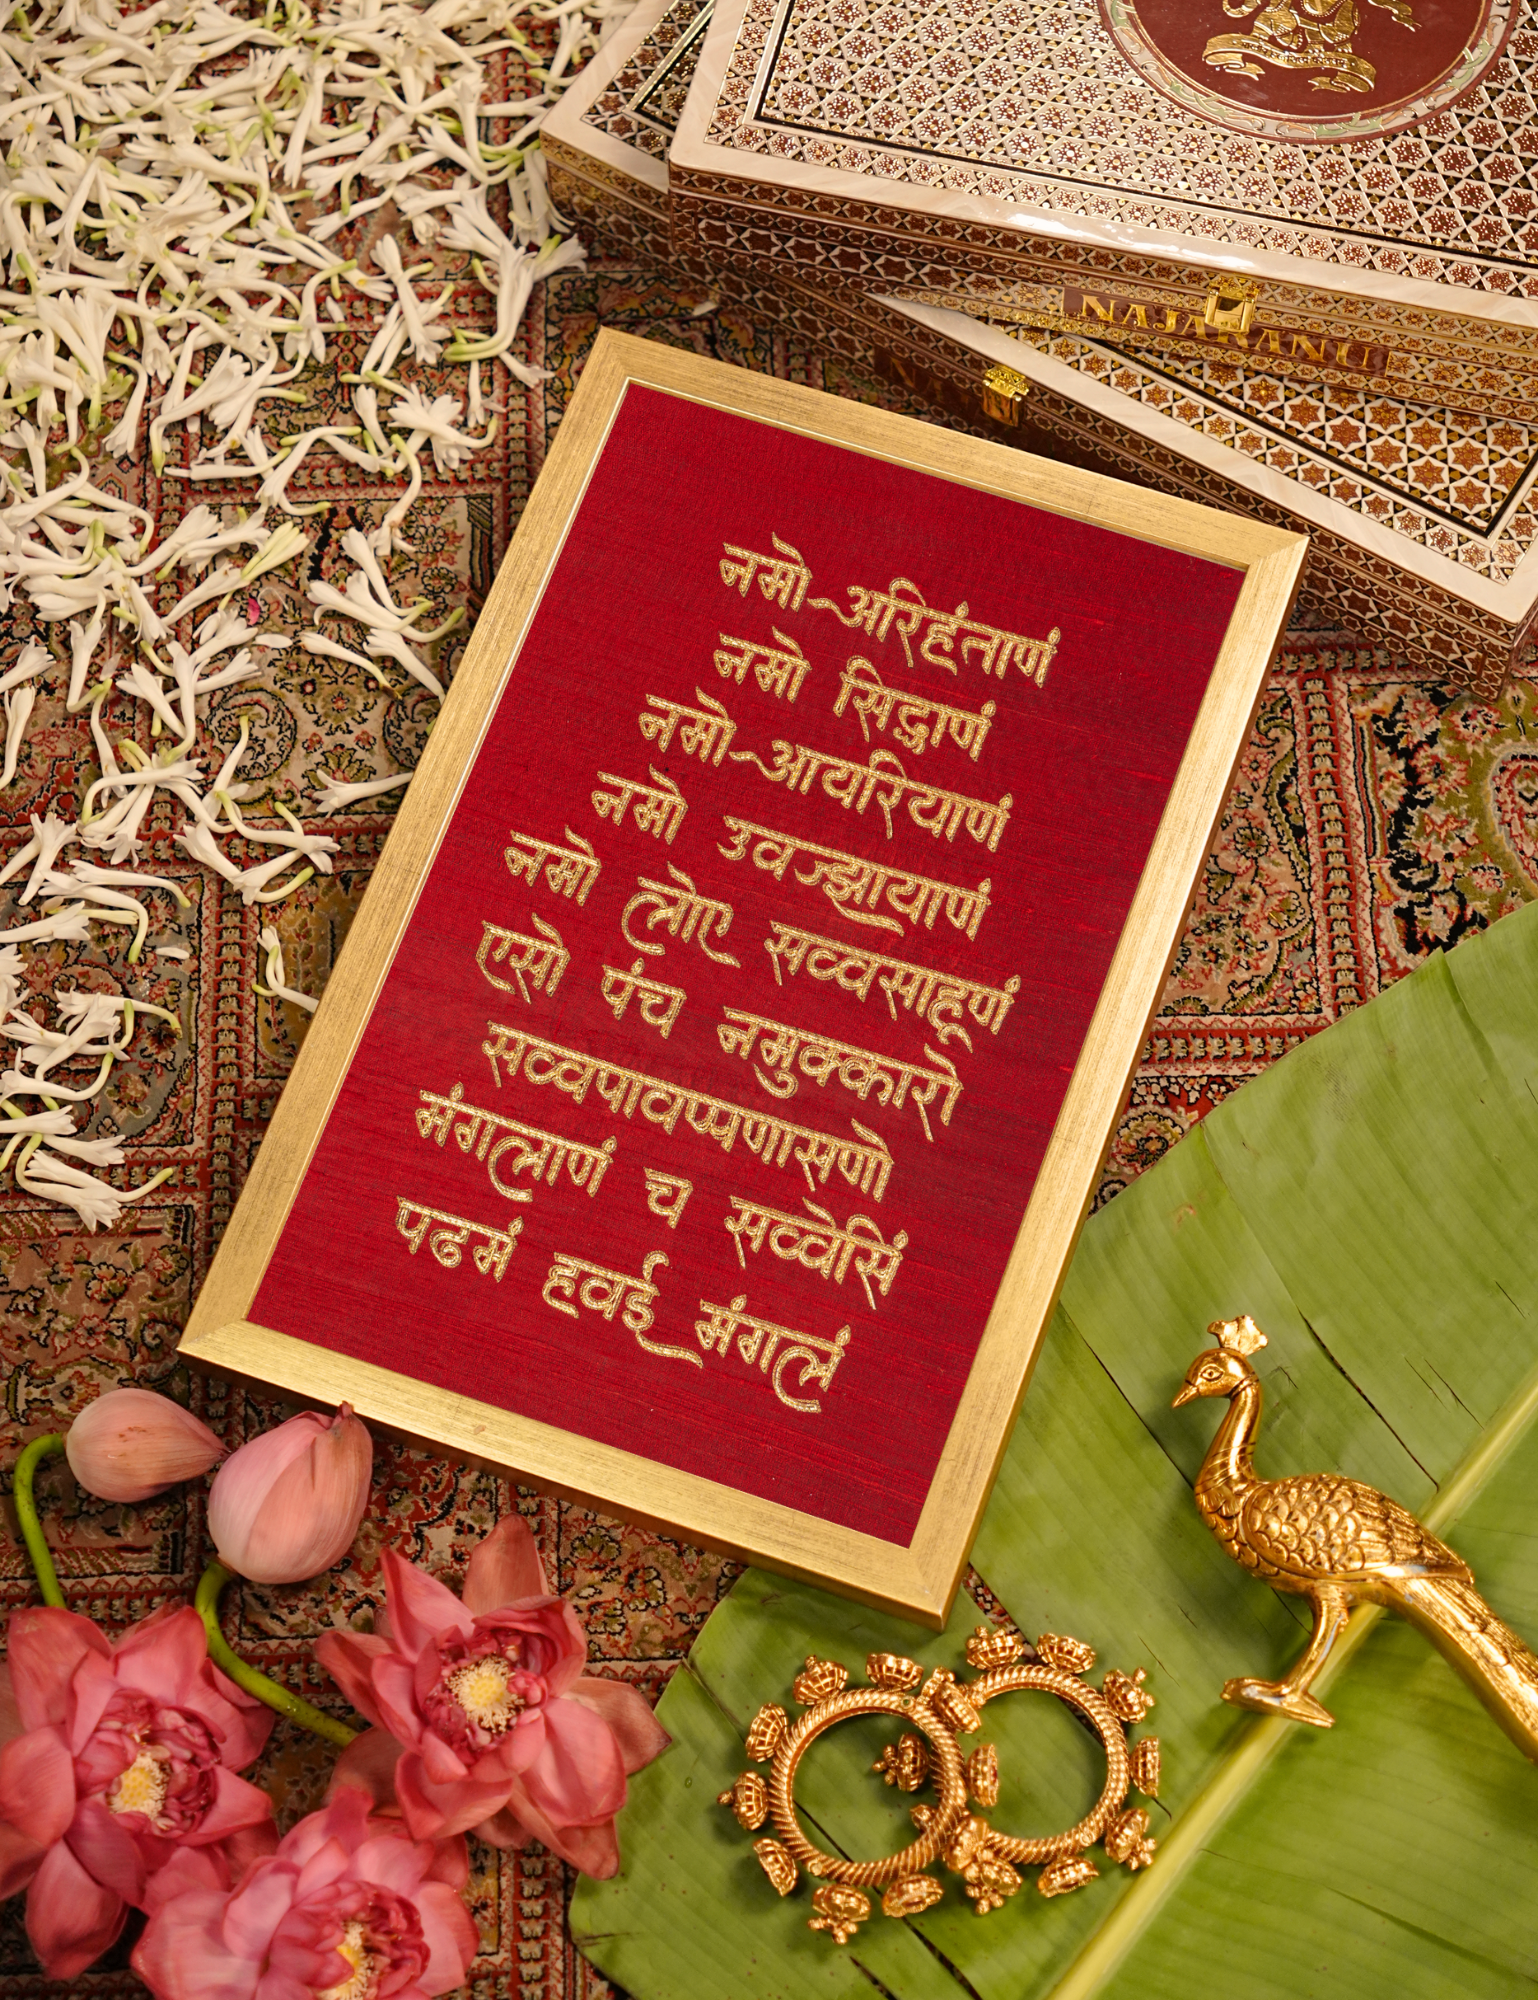 NAJARANU
नमो अरिहंताणं
नमो सिद्धाणं
नमो आयरियाणं
नमो उवज्झायाणं
नमो लोए सव्वसाहूणं
एसो पंच नमुक्कारो
सव्वपावप्पणासणो
मंगलाणं च सव्वेसिं
पढमं हवई मंगलं